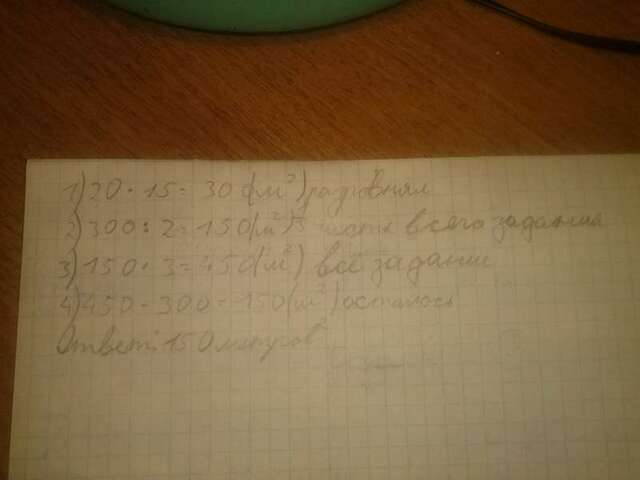 1) 20 · 15 = 300(м²) разровнял
2) 300 : 2 = 150(м²) часть всего задания
3) 150 · 3 = 450(м²) всё задание
4) 450 - 300 = 150(м²) осталось
Ответ: 150 метров²